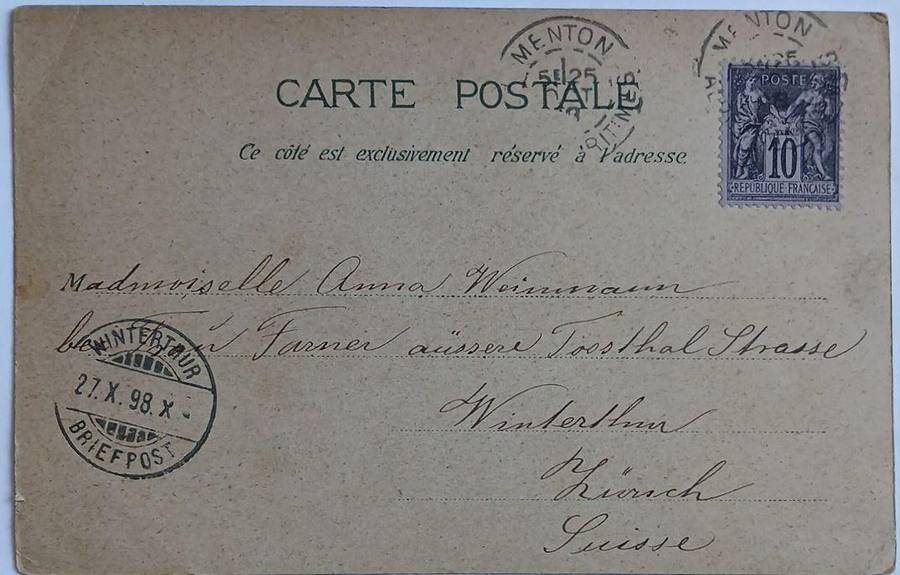 MENTON
25
MENTON
25
CARTE POSTALE
Ce côté est exclusivement réservé à l'adresse
POSTE
10
REPUBLIQUE FRANÇAISE
Madmoiselle Anna Weinmann
bei Frau Farner aüssere Toosthal Strasse
Winterthur
Zürsch
Suisse
WINTERTHUR
27.X.98.X
BRIEFPOST